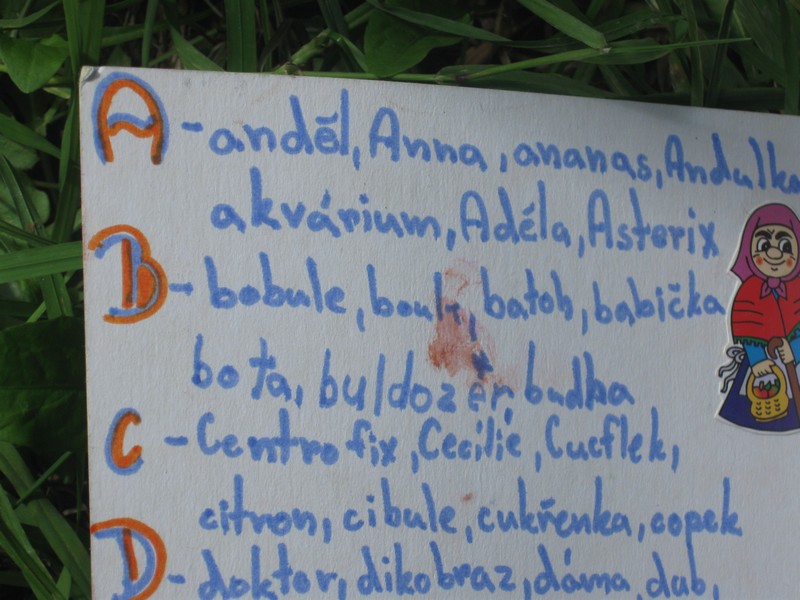 A - anděl, Anna, ananas, Andulka
akvárium, Adéla, Asterix
B - bobule, batoh, babička
bota, buldozer, budka
C - Centrofix, Cecilie, Cucflek,
citron, cibule, cukřenka, copek
D - doktor, dikobraz, dáma, dub,